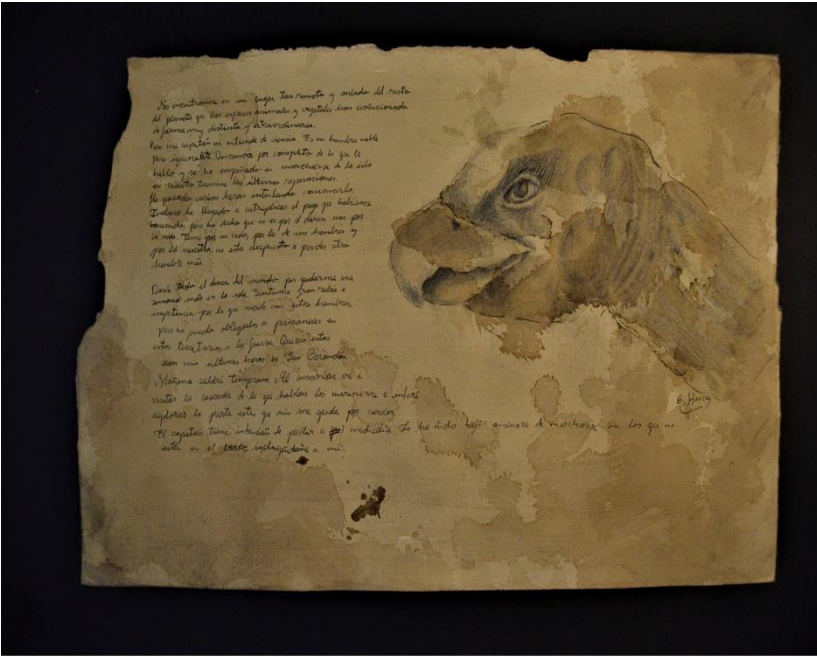 Nos encontramos en un lugar tan remoto y aislado del resto
del planeta que las especies animales y vegetales han evolucionado
de forma muy distinta y extraordinaria.
Pero mi capitán no entiende de ciencia. Es un hombre noble
pero ignorante. Desconoce por completo de lo que le
hablo y se ha empeñado en marcharse de la isla
en cuanto termine las últimas reparaciones.
He pasado varias horas intentando convencerlo.
Incluso he llegado a cuadriplicar el pago que habíamos
convenido, pero ha dicho que no es por el dinero, sino por
la vida. Teme por mi vida, por la de sus hombres y
por la nuestra, no está dispuesto a perder otro
hombre más.
Daría todo el dinero del mundo por quedarme una
semana más en la isla. Siento una gran rabia e
impotencia por lo que sucede con estos hombres,
pero no puedo obligarlos a permanecer en
estos territorios a la fuerza. Quizás estas
sean mis últimas horas en San Borondón
Mañana saldré temprano. Al amanecer iré a
visitar la cascada de la que hablan los marineros e
explorar la parte este, que aún me queda por conocer
El capitán tiene intención de partir a mediodía. Lo ha dicho bajo amenaza de marcharse sin los que no
estén en el barco, incluyéndome a mí.